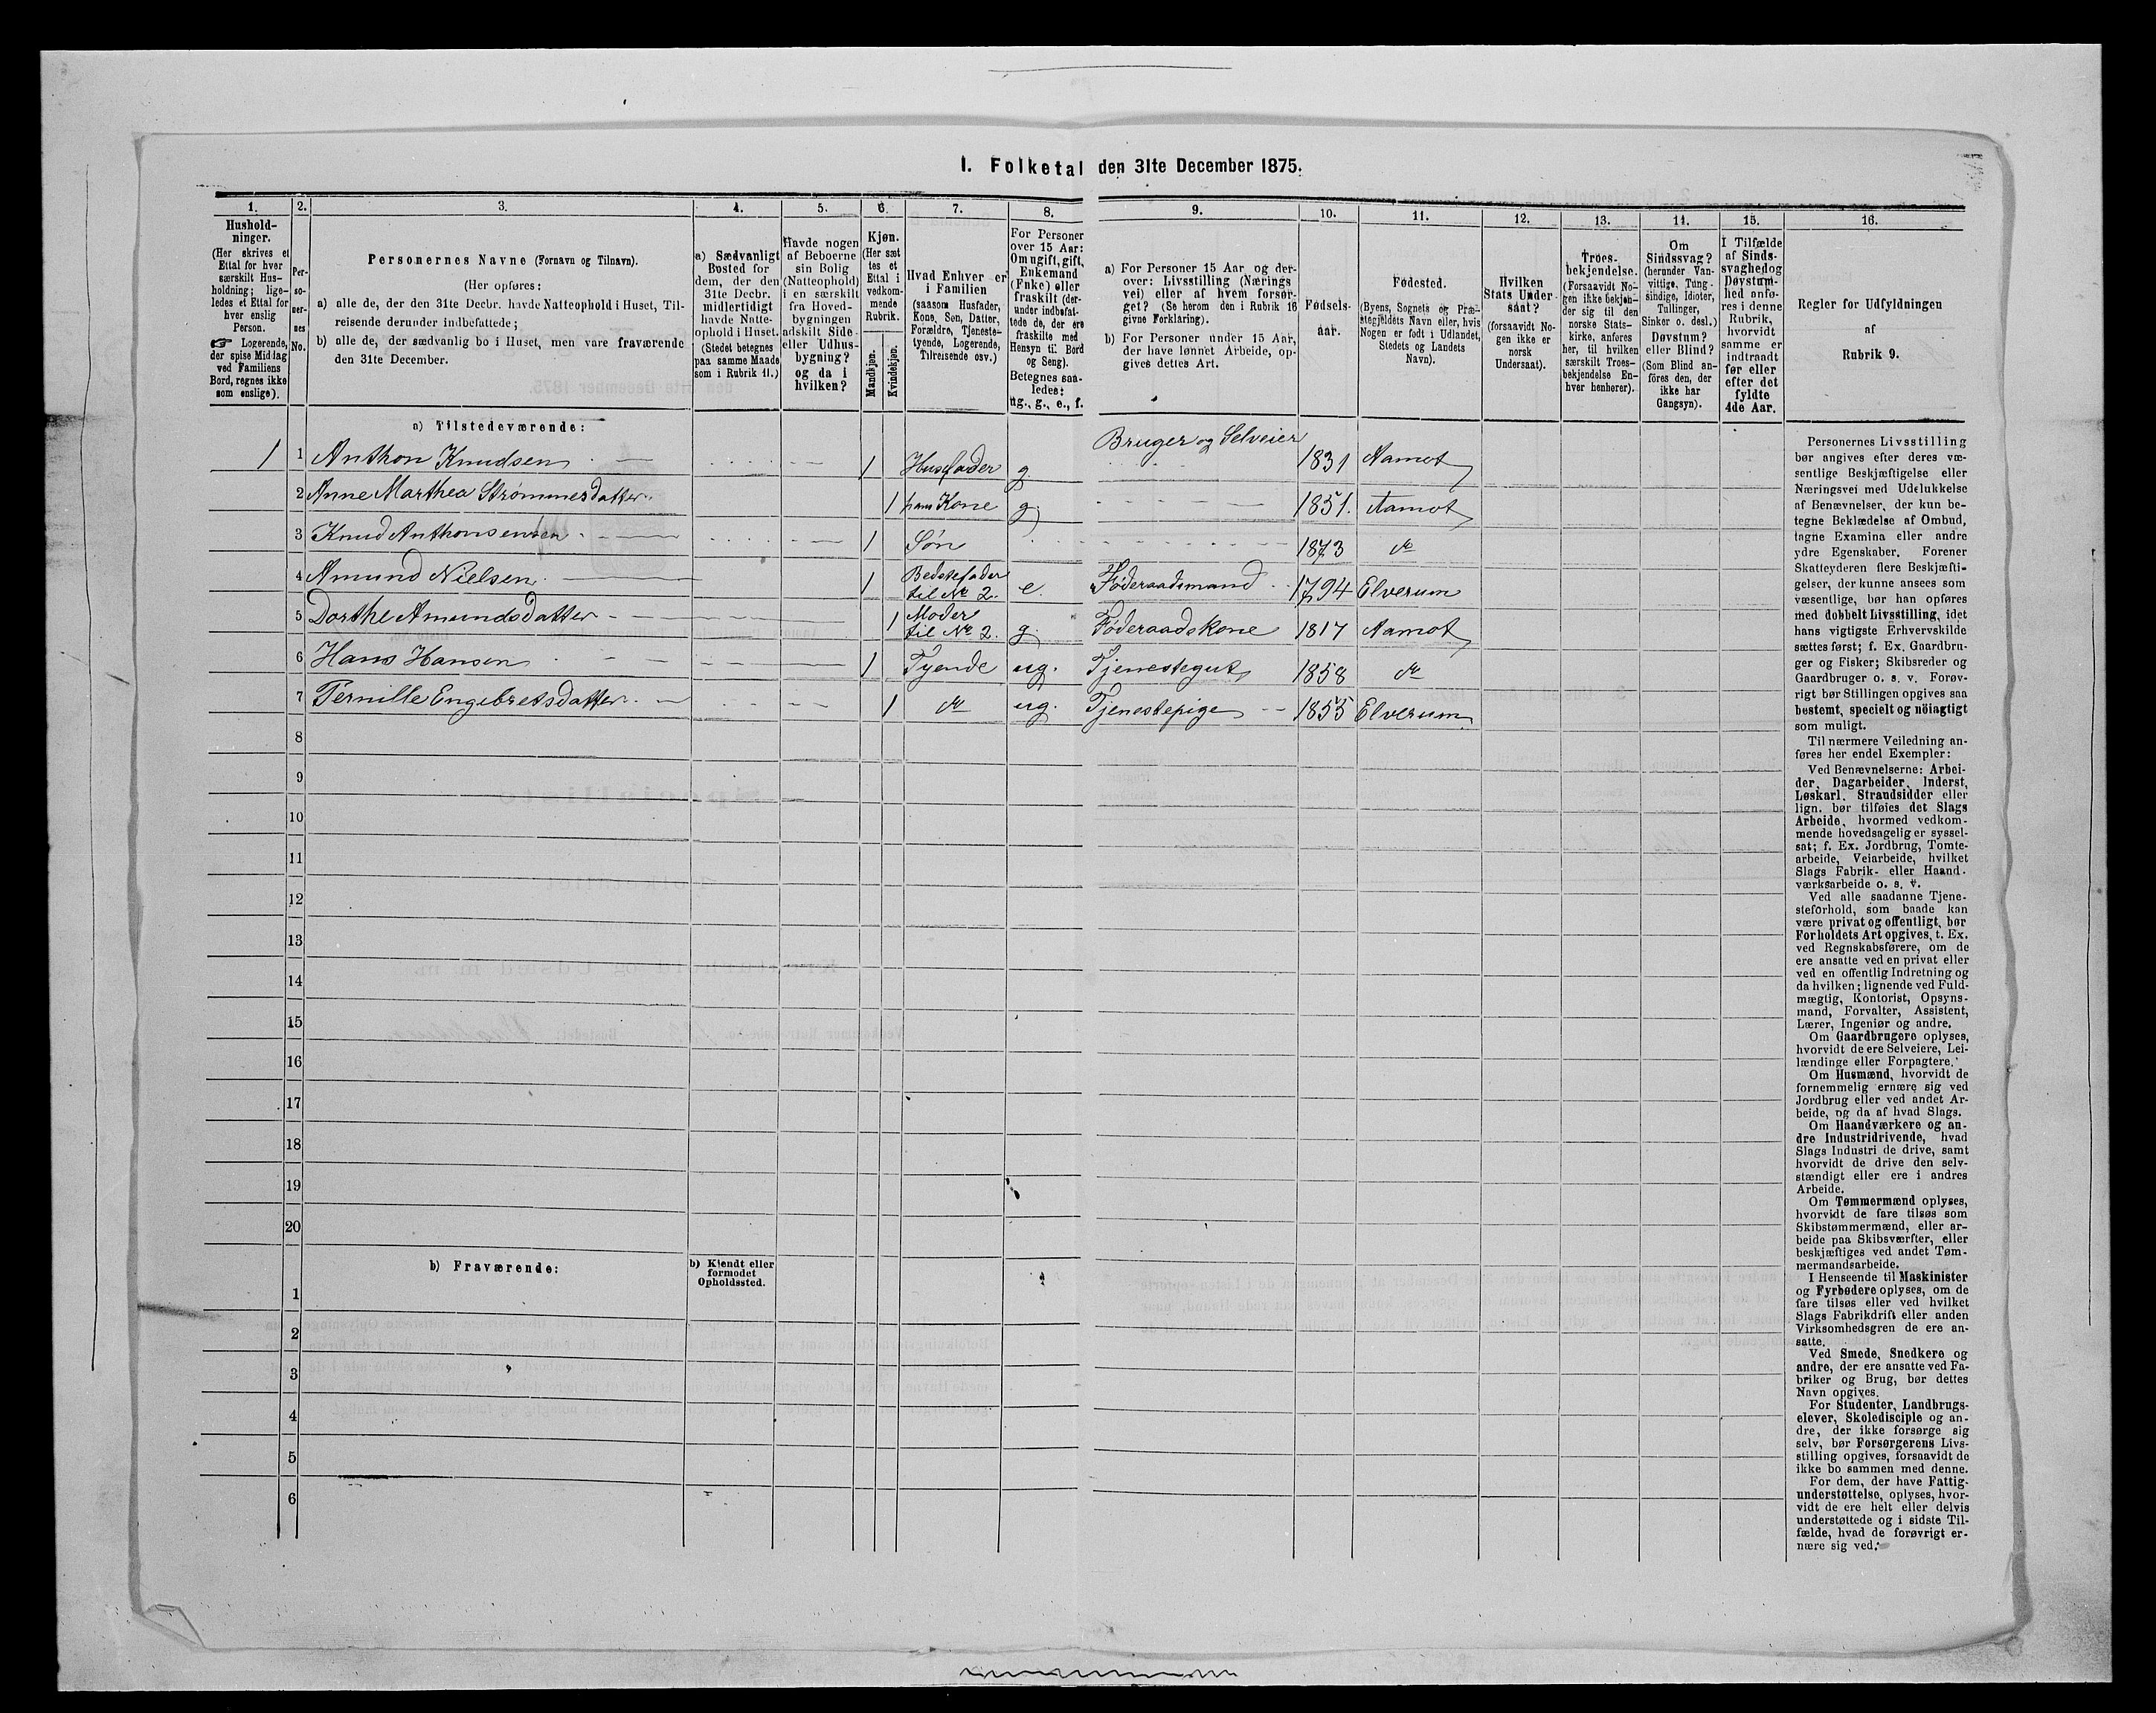 I. Folketal den 31te December 1875.
1. 2. 3. 4. 5. 6. 7. 8. 9. 10. 11. 12. 13. 14. 15. 16.
Hushold-
ninger.
(Her skrives et
Ettal for hver
særskilt Hus-
holdning; lige-
ledes et Ettal for
hver enslig
Person.
☞ Logerende,
der spise Middag
ved Familiens
Bord, regnes ikke
som enslige).
Per-
so-
ner-
nes
No.
Personernes Navne (Fornavn og Tilnavn).
(Her opføres:
a) alle de, der den 31te Decbr. havde Natteophold i Huset, Til-
reisende derunder indbefattede;
b) alle de, der sædvanlig bo i Huset, men vare fraværende
den 31te December.
a) Sædvanligt
Bosted for
dem, der den
31te Decbr.
midlertidigt
havde Natte-
ophold i Huset.
(Stedet betegnes
paa samme Maade
som i Rubrik 11.)
Havde nogen
af Beboerne
sin Bolig
(Natteophold)
i en særskilt
fra Hoved-
bygningen
adskilt Side-
eller Udhus-
bygning?
og da i
hvilken?
Kjøn.
(Her sæt
tes et
Ettal i
vedkom-
mende
Rubrik.
Mandkjøn.
Kvindekjøn.
Hvad Enhver er
i Familien
(saasom Husfader,
Kone, Søn, Datter,
Forældre, Tjeneste-
tyende, Logerende,
Tilreisende osv.)
For Personer
over 15 Aar:
Om ugift, gift,
Enkemand
(Enke) eller
fraskilt (der-
under indbefat-
tede de, der ere
fraskilte med
Hensyn til Bord
og Seng).
Betegnes saa-
ledes:
ug., g., e., f.
a) For Personer 15 Aar og der-
over: Livsstilling (Nærings
vei) eller af hvem forsør-
get? (Se herom den i Rubrik 16
givne Forklaring).
b) For Personer under 15 Aar,
der have lønnet Arbeide, op-
gives dettes Art.
Fødsels-
aar.
Fødested.
(Byens, Sognets og Præ-
stegjeldets Navn eller, hvis
Nogen er født i Udlandet,
Stedets og Landets
Navn).
Hvilken
Stats Under-
saat?
(forsaavidt No-
gen ikke er
norsk
Undersaat).
Troes-
bekjendelse.
(Forsaavidt No-
gen ikke bekjen-
der sig til den
norske Stats-
kirke, anføres
her, til hvilken
særskilt Troes-
bekjendelse En-
hver henhører).
Om
Sindssvag?
(herunder Van-
vittige, Tung-
sindige, Idioter,
Tullinger,
Sinker o. desl.)
Døvstum?
eller Blind?
(Som Blind an-
føres den, der
ikke har
Gangsyn).
I Tilfælde
af Sinds-
svaghed og
Døvstum-
hed anfø-
res i denne
Rubrik,
hvorvidt
samme er
indtraadt
før eller
efter det
fyldte
4de Aar.
Regler for Udfyldningen
af
Rubrik 9.
a) Tilstedeværende:
1 1 Anthon Knudsen 1 Husfader g Bruger og Selveier 1831 Aamot
2 Anne Marthea Strømmesdatter 1 hans Kone g 1851. Aamot
3 Knud Anthonsen 1 Søn 1873 do
4 Amund Nielsen 1 Bedstefader til No 2. e. Føderaadsmand 1794 Elverum
5 Dorthe Amundsdatter 1 Moder til No 2. g. Føderaadskone 1817 Aamot
6 Hans Hansen 1 Tyende ug. Tjenestegut 1858 do
7 Pernille Engebretsdatter 1 do ug. Tjenestepige 1855 Elverum
8
9
10
11
12
13
14
15
16
17
18
19
20
b) Fraværende:
b) Kjendt eller
formodet
Opholdssted.
1
2
3
4
5
6
Personernes Livsstilling
bør angives efter deres væ-
sentlige Beskjæftigelse eller
Næringsvei med Udelukkelse
af Benævnelser, der kun be-
tegne Beklædelse af Ombud,
tagne Examina eller andre
ydre Egenskaber. Forener
Skatteyderen flere Beskjæfti-
gelser, der kunne ansees som
væsentlige, bør han opføres
med dobbelt Livsstilling, idet
hans vigtigste Erhvervskilde
sættes først; f. Ex. Gaardbru-
ger og Fisker; Skibsreder og
Gaardbruger o. s. v. Forøv-
rigt bør Stillingen opgives saa
bestemt, specielt og nöiagtigt
som muligt.
Til nærmere Veiledning an-
føres her endel Exempler:
Ved Benævnelserne: Arbei-
der, Dagarbeider, Inderst,
Løskarl, Strandsidder eller
lign. bør tilføies det Slags
Arbeide, hvormed vedkom-
mende hovedsagelig er syssel-
sat; f. Ex. Jordbrug, Tomte-
arbeide, Veiarbeide, hvilket
Slags Fabrik- eller Haand-
værksarbeide o. s. v.
Ved alle saadanne Tjene-
steforhold, som baade kan
være privat og offentligt, bør
Forholdets Art opgives, t. Ex.
ved Regnskabsførere, om de
ere ansatte ved en privat eller
ved en offentlig Indretning og
da hvilken; lignende ved Fuld-
mægtig, Kontorist, Opsyns-
mand, Forvalter, Assistent,
Lærer, Ingeniør og andre.
Om Gaardbrugere oplyses,
hvorvidt de ere Selveiere, Lei-
lændinge eller Forpagtere.
Om Husmænd, hvorvidt de
fornemmelig ernære sig ved
Jordbrug eller ved andet Ar-
beide, og da af hvad Slags.
Om Haandværkere og an-
dre Industridrivende, hvad
Slags Industri de drive, samt
hvorvidt de drive den selv-
stændigt eller ere i andres
Arbeide.
Om Tømmermænd oplyses,
hvorvidt de fare tilsøs som
Skibstømmermænd, eller ar-
beide paa Skibsværfter, eller
beskjæftiges ved andet Tøm-
mermandsarbeide.
I Henseende til Maskinister
og Fyrbødere oplyses, om de
fare tilsøs eller ved hvilket
Slags Fabrikdrift eller anden
Virksomhedsgren de ere an-
satte.
Ved Smede, Snedkere og
andre, der ere ansatte ved Fa-
briker og Brug, bør dettes
Navn opgives.
For Studenter, Landbrugs-
elever, Skoledisciple og an-
dre, der ikke forsørge sig
selv, bør Forsørgerens Livs-
stilling opgives, forsaavidt de
ikke bo sammen med denne.
For dem, der have Fattig-
understøttelse, oplyses, hvor-
vidt de ere helt eller delvis
understøttede og i sidste Til-
fælde, hvad de forøvrigt er-
nære sig ved.